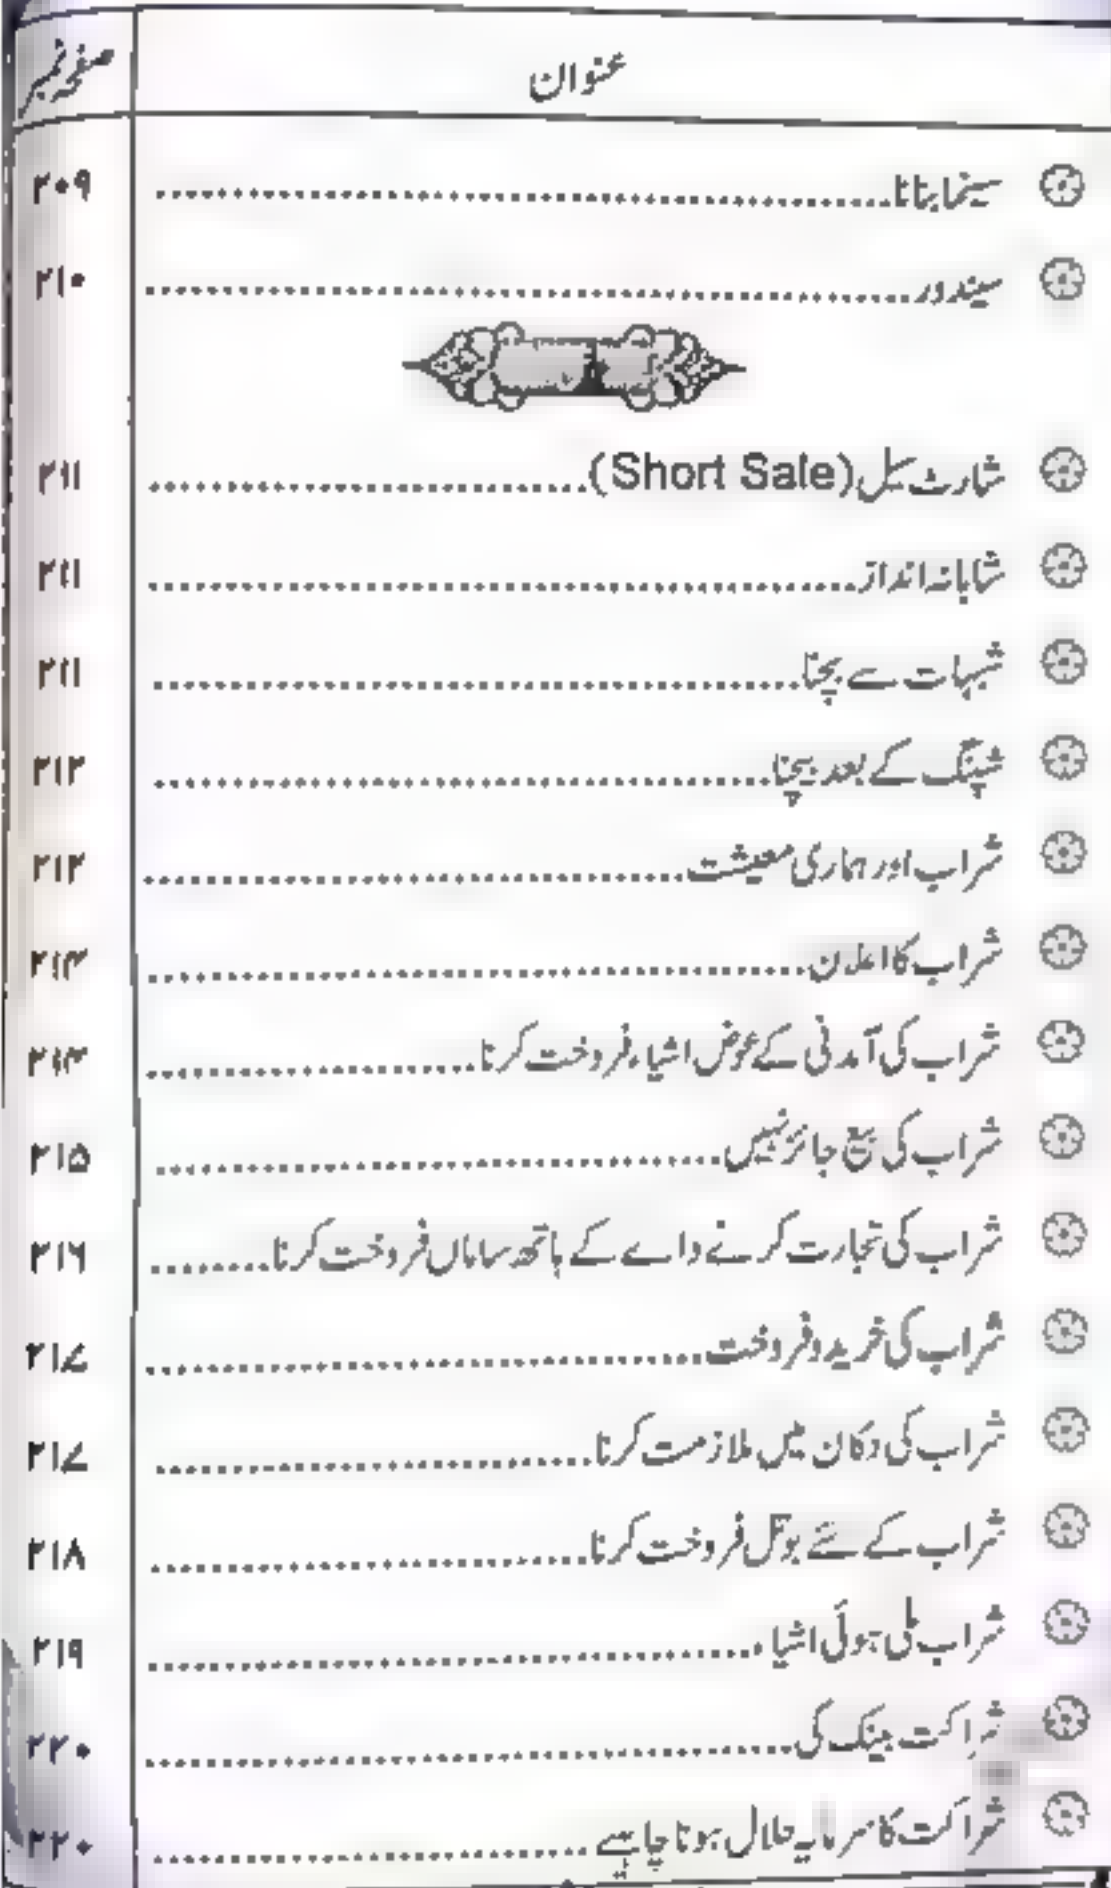 عنوان صفحہ نمبر
سینما بنانا ۲۰۹
سیندور ۲۱۰
شارٹ سیل (Short Sale) ۲۱۱
شاہانہ انداز ۲۱۱
شبہات سے بچنا ۲۱۱
شپنگ کے بعد بیچنا ۲۱۲
شراب اور ہماری معیشت ۲۱۲
شراب کا اعلان ۲۱۳
شراب کی آمدنی کے عوض اشیاء فروخت کرنا ۲۱۳
شراب کی بیع جائز نہیں ۲۱۵
شراب کی تجارت کرنے والے کے ہاتھ سامان فروخت کرنا ۲۱۶
شراب کی خرید و فروخت ۲۱۷
شراب کی دکان میں ملازمت کرنا ۲۱۷
شراب کے لئے بوتل فروخت کرنا ۲۱۸
شراب ملی ہوئی اشیاء ۲۱۹
شراکت بینک کی ۲۲۰
شراکت کا سرمایہ حلال ہونا چاہیے ۲۲۰